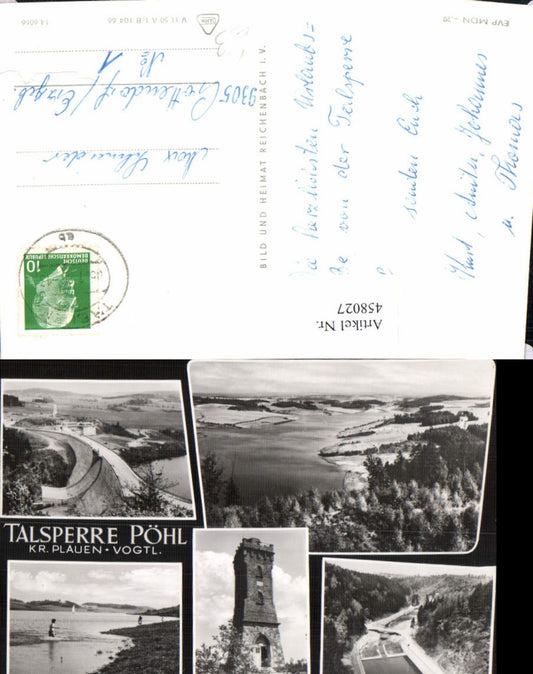 Die herzlichsten Urlaubs=
 von der Talsperre
senden Euch
Kurt, Anita, Johannes
u. Thomas
Artikel Nr.
458027
BILD UND HEIMAT REICHENBACH I. V.
10
DEUTSCHE
DEMOKRATISCHE REPUBLIK
Max Schneider
9305 Crottendorf/Erzgeb
No 1
V 11 50 A 1/B 104 66
14 6066
EVP MDN -,20
TALSPERRE PÖHL
KR. PLAUEN • VOGTL.